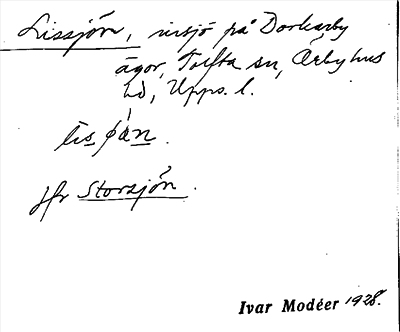 Lissjön, insjö på Dorkarby
ägor, Tolfta sn, Örbyhus
hd, Upps. l.
lis
jfr Storsjön.
Ivar Modéer 1928.